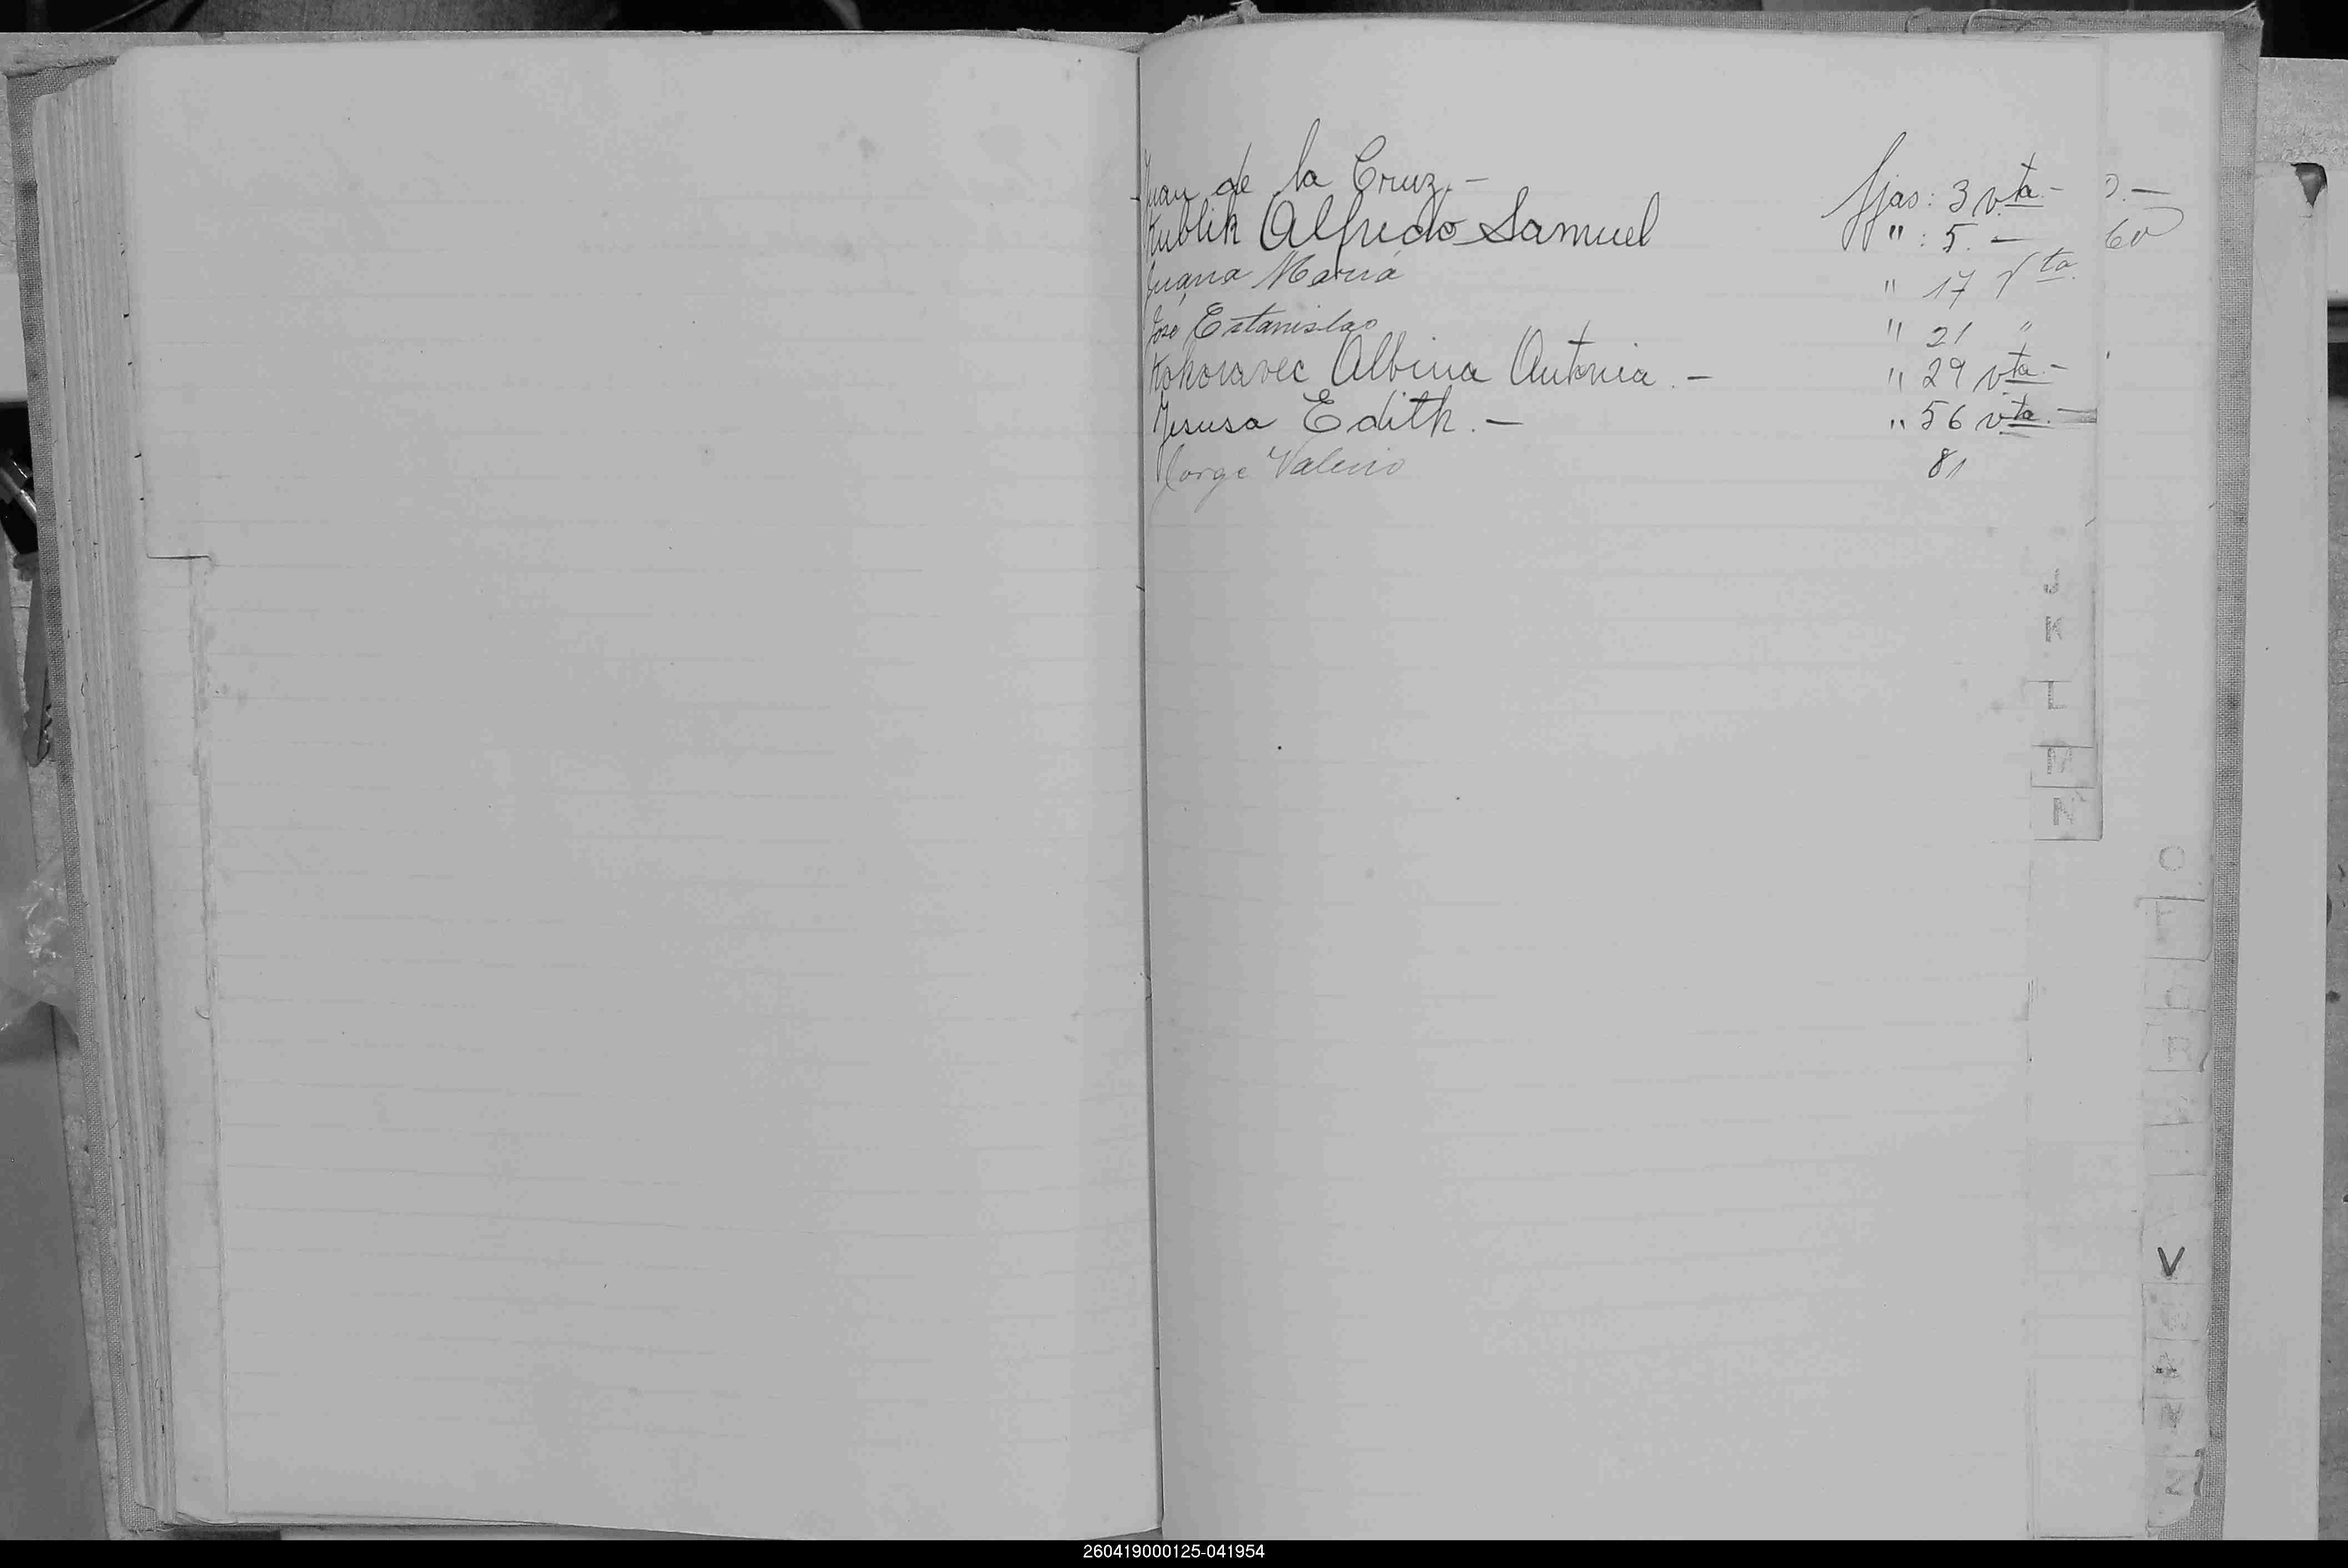 Juan de la Cruz.- fjas: 3 vta-
Kublik Alfredo Samuel " : 5. -
Juana María " 17 Vta.
José Estanislao " 21 "
Kokoravec Albina Antonia.- " 29 vta.-
Jesusa Edith.- " 56 vta.-
Jorge Valerio 81
60
J
K
L
M
N
O
R
V
Z
260419000125-041954